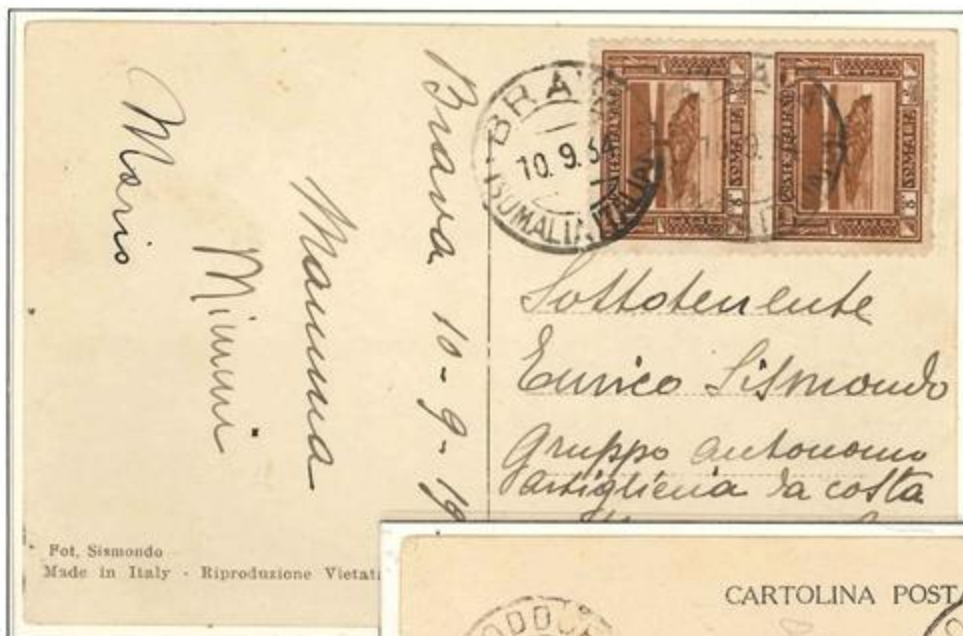 Brava 10-9-19
Mamma
Mimmi
Mario
BRAVA
10.9.34
(SOMALIA ITALIANA)
POSTE ITALIANE
SOMALIA
POSTE ITALIANE
SOMALIA
Sottotenente
Enrico Sismondo
Gruppo autonomo
artiglieria da costa
Fot. Sismondo
Made in Italy - Riproduzione Vietat
CARTOLINA POSTA
ODDUR